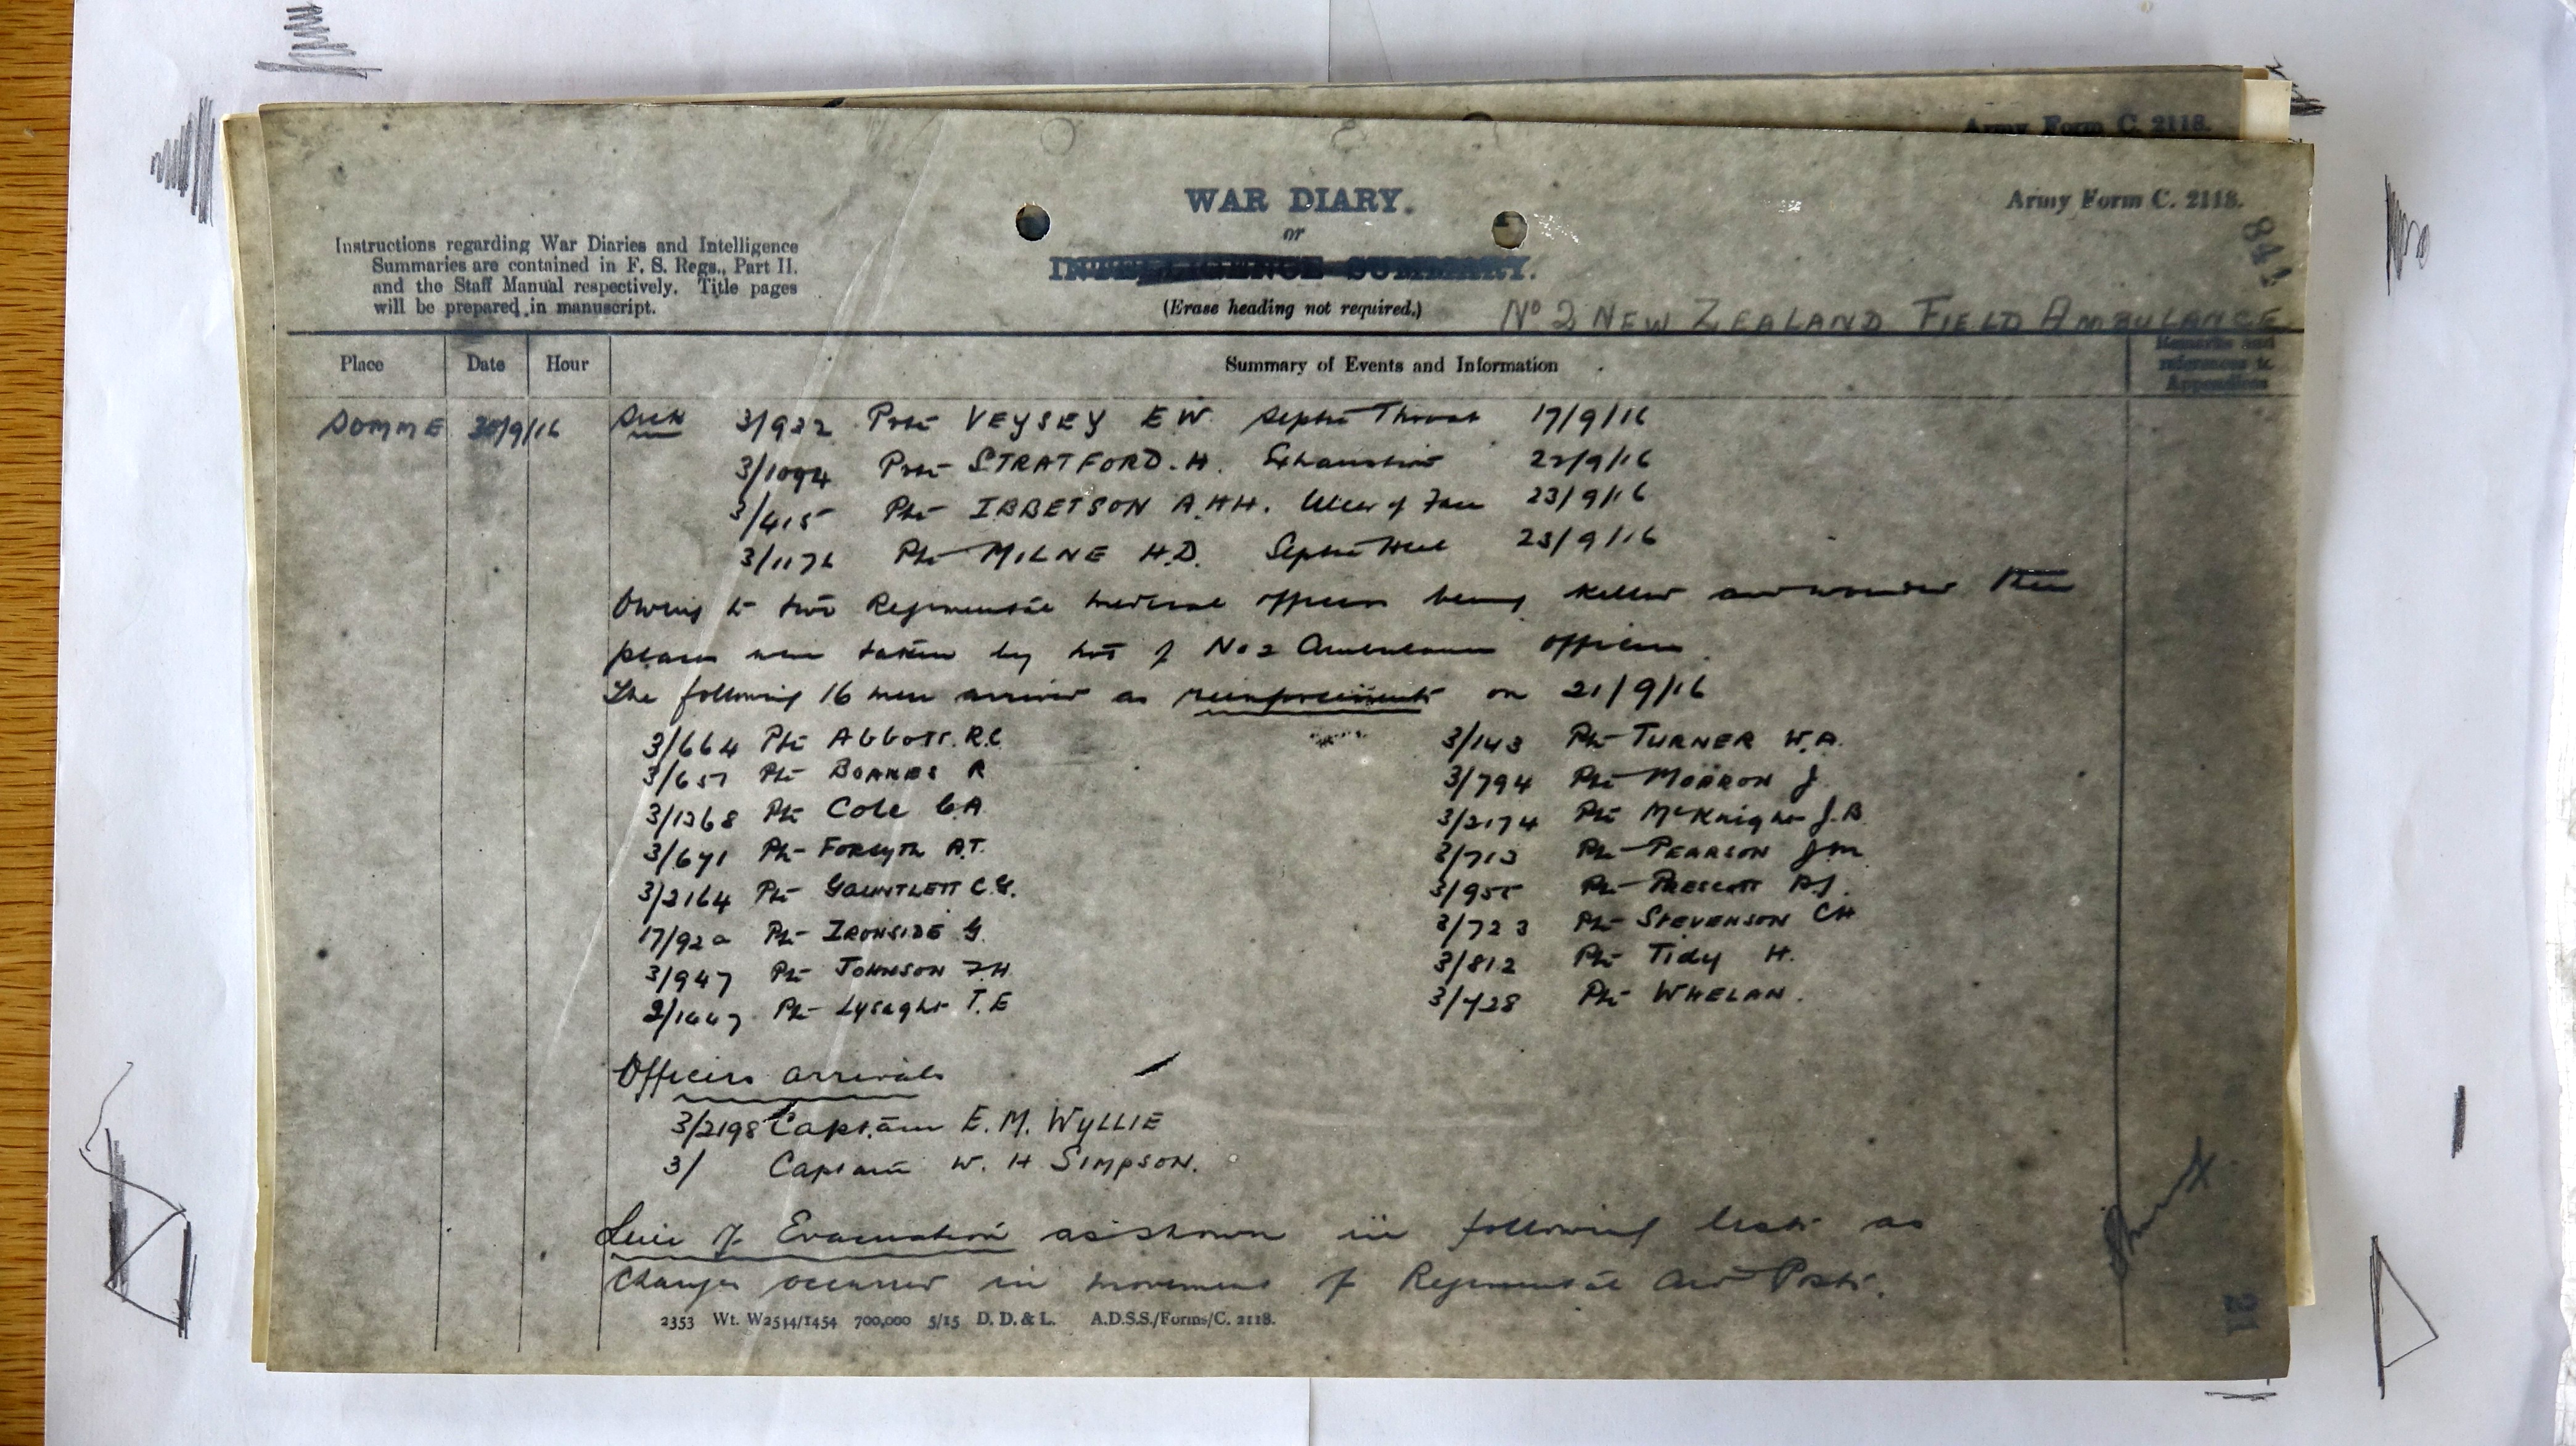 Army Form C. 2118.
WAR DIARY.
Army Form C. 2118.
or
INTELLIGENCE SUMMARY.
(Erase heading not required.)
Instructions regarding War Diaries and Intelligence
Summaries are contained in F. S. Regs., Part II.
and the Staff Manual respectively. Title pages
will be prepared in manuscript.
No 2 NEW ZEALAND FIELD AMBULANCE
Place Date Hour Summary of Events and Information Remarks and references to Appendices
SOMME /9/16 Sick 3/932 Pte VEYSEY E W. Septic Throat 17/9/16
3/1094 Pte STRATFORD. H. Exhaustion 22/9/16
3/415 Pte IBBETSON A.HH. Ulcer of Face 23/9/16
3/1176 Pte MILNE H.D. Septic Heel 23/9/16
Owing to two Regimental medical officers being killed and wounded their
places were taken by two of No 2 Ambulance officers.
The following 16 men arrived as reinforcements on 21/9/16
3/664 Pte Abbott. R.C. 3/143 Pte TURNER W.A.
3/657 Pte BOAKES R 3/794 Pte MORRON J.
3/1368 Pte Cole C.A. 3/2174 Pte McKnight J.B.
3/671 Pte Forsyth A.T. 3/713 Pte PEARSON J.M
3/2164 Pte GAUNTLETT C.G. 3/955 Pte PRESCOTT
17/92 Pte IRONSIDE G. 3/723 Pte STEVENSON CH
3/947 Pte JOHNSON F.H. 3/812 Pte Tidy H.
2/1447 Pte Lysaght T.E 3/728 Pte WHELAN.
Officers arrivals
3/2198 Captain E. M. WYLLIE
3/ Captain W. H SIMPSON.
Line of Evacuation as shown in following lists as
changes occurred in movement of Regimental Aid Posts.
2353 Wt. W2514/1454 700,000 5/15 D. D. & L. A.D.S.S./Forms/C. 2118.
21